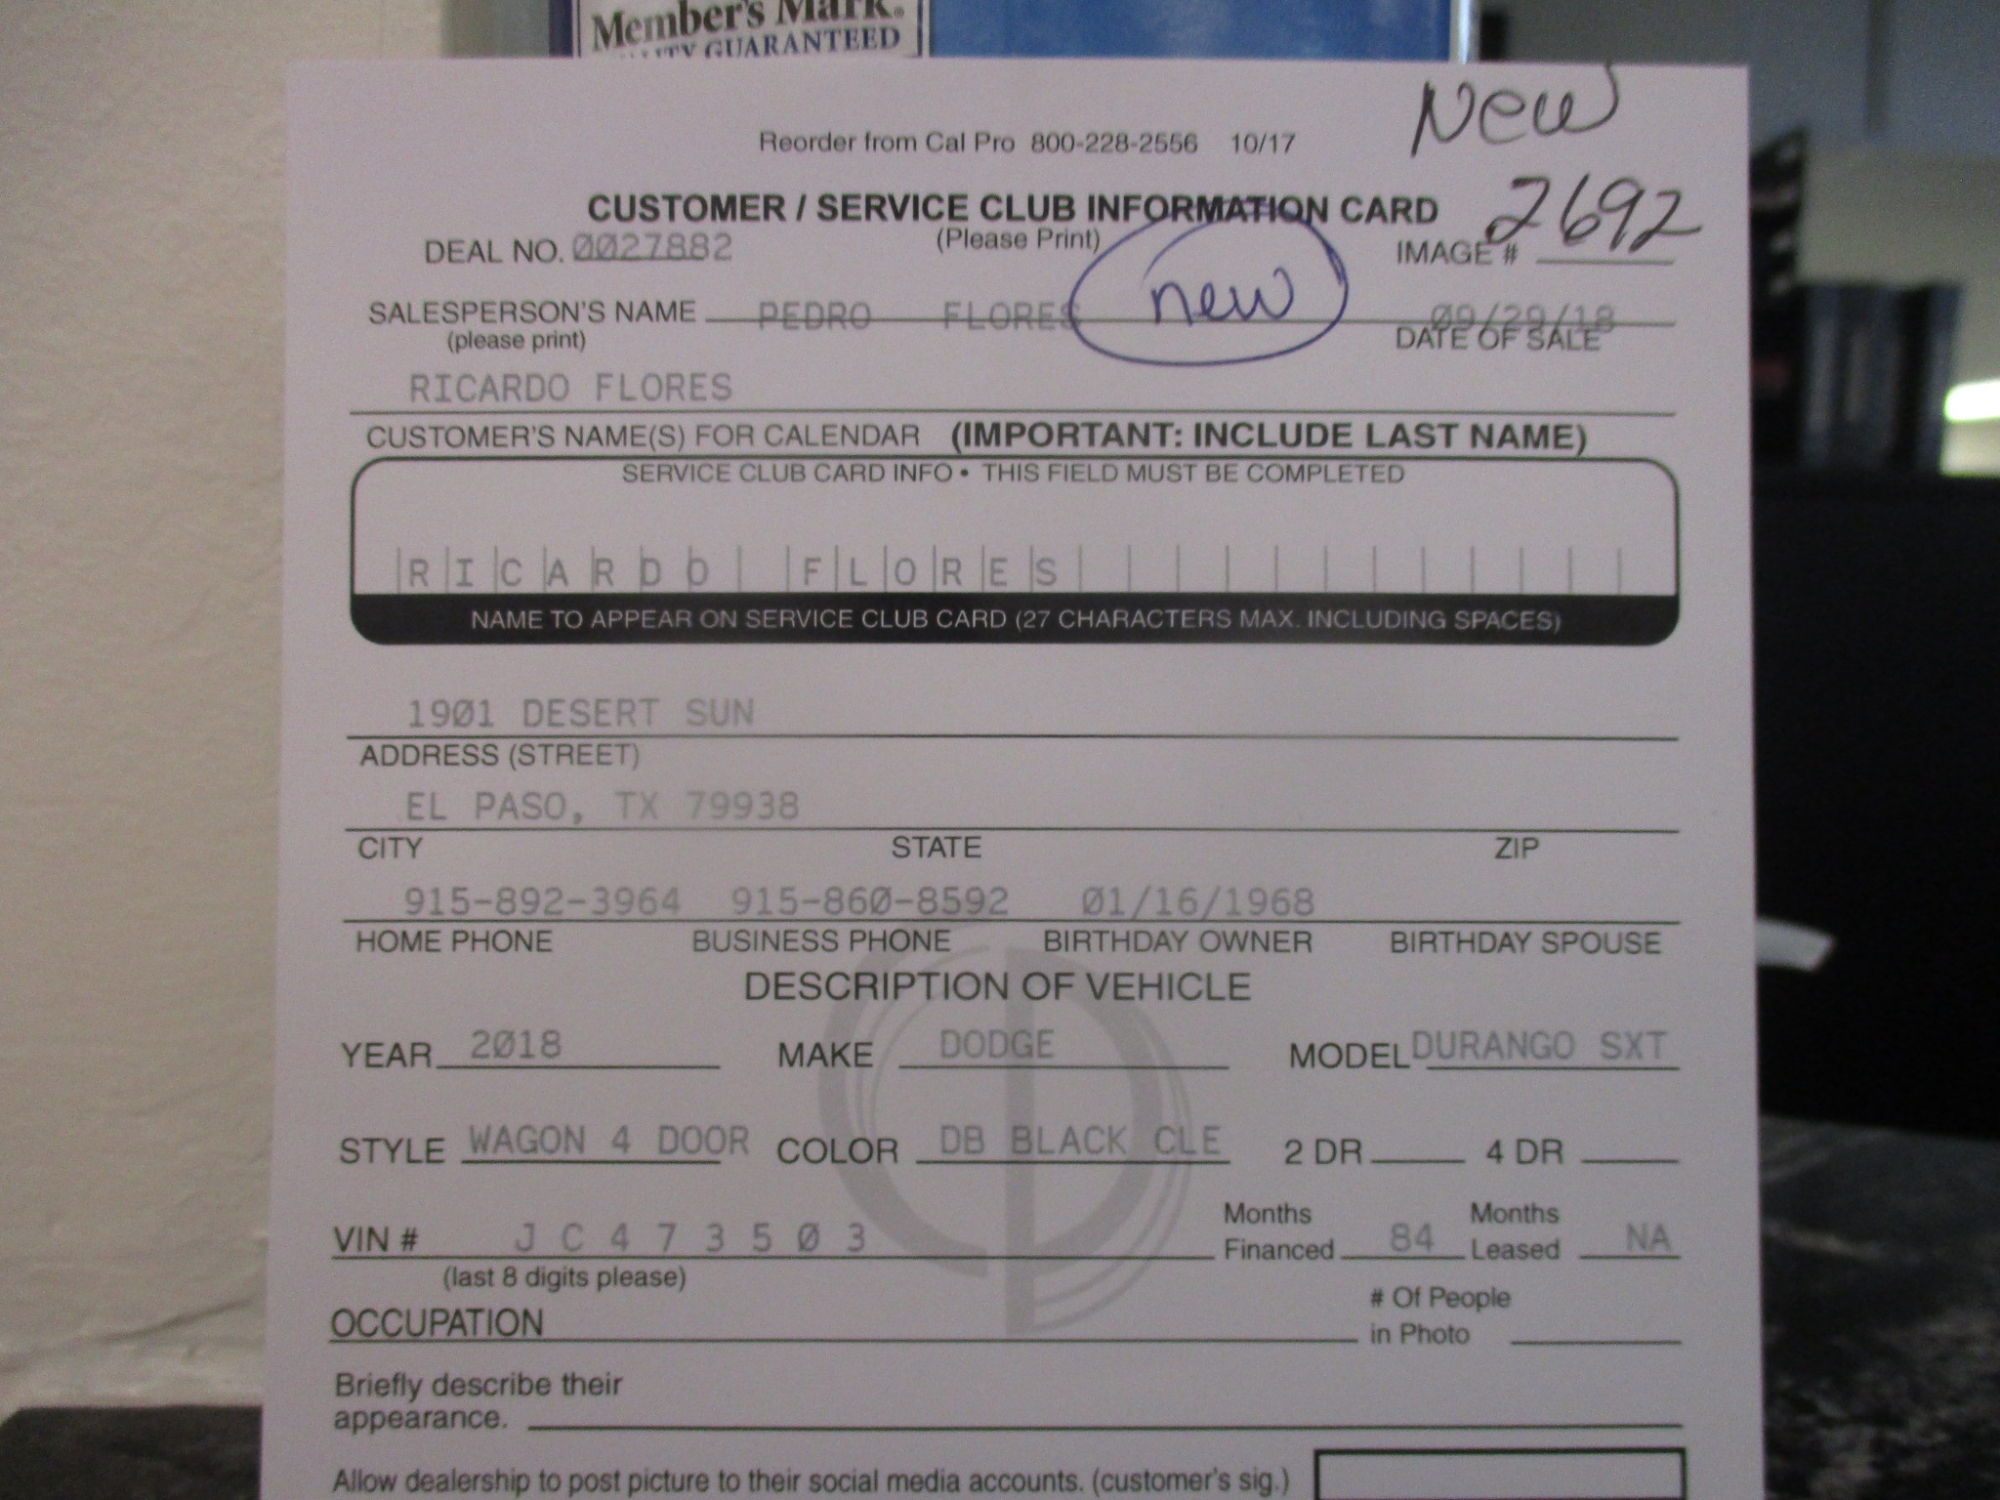 Member's Mark.
GUARANTEED
New
Reorder from Cal Pro 800-228-2556 10/17
CUSTOMER / SERVICE CLUB INFORMATION CARD
2692
DEAL NO. 0027882 (Please Print) IMAGE #
new
SALESPERSON'S NAME PEDRO FLORES 09/29/18
(please print) DATE OF SALE
RICARDO FLORES
CUSTOMER'S NAME(S) FOR CALENDAR (IMPORTANT: INCLUDE LAST NAME)
SERVICE CLUB CARD INFO • THIS FIELD MUST BE COMPLETED
RICARDO FLORES
NAME TO APPEAR ON SERVICE CLUB CARD (27 CHARACTERS MAX. INCLUDING SPACES)
1901 DESERT SUN
ADDRESS (STREET)
EL PASO, TX 79938
CITY STATE ZIP
915-892-3964 915-860-8592 01/16/1968
HOME PHONE BUSINESS PHONE BIRTHDAY OWNER BIRTHDAY SPOUSE
DESCRIPTION OF VEHICLE
YEAR 2018 MAKE DODGE MODEL DURANGO SXT
STYLE WAGON 4 DOOR COLOR DB BLACK CLE 2 DR 4 DR
VIN # JC473503 Months Financed 84 Months Leased NA
(last 8 digits please)
OCCUPATION # Of People in Photo
Briefly describe their
appearance.
Allow dealership to post picture to their social media accounts. (customer's sig.)